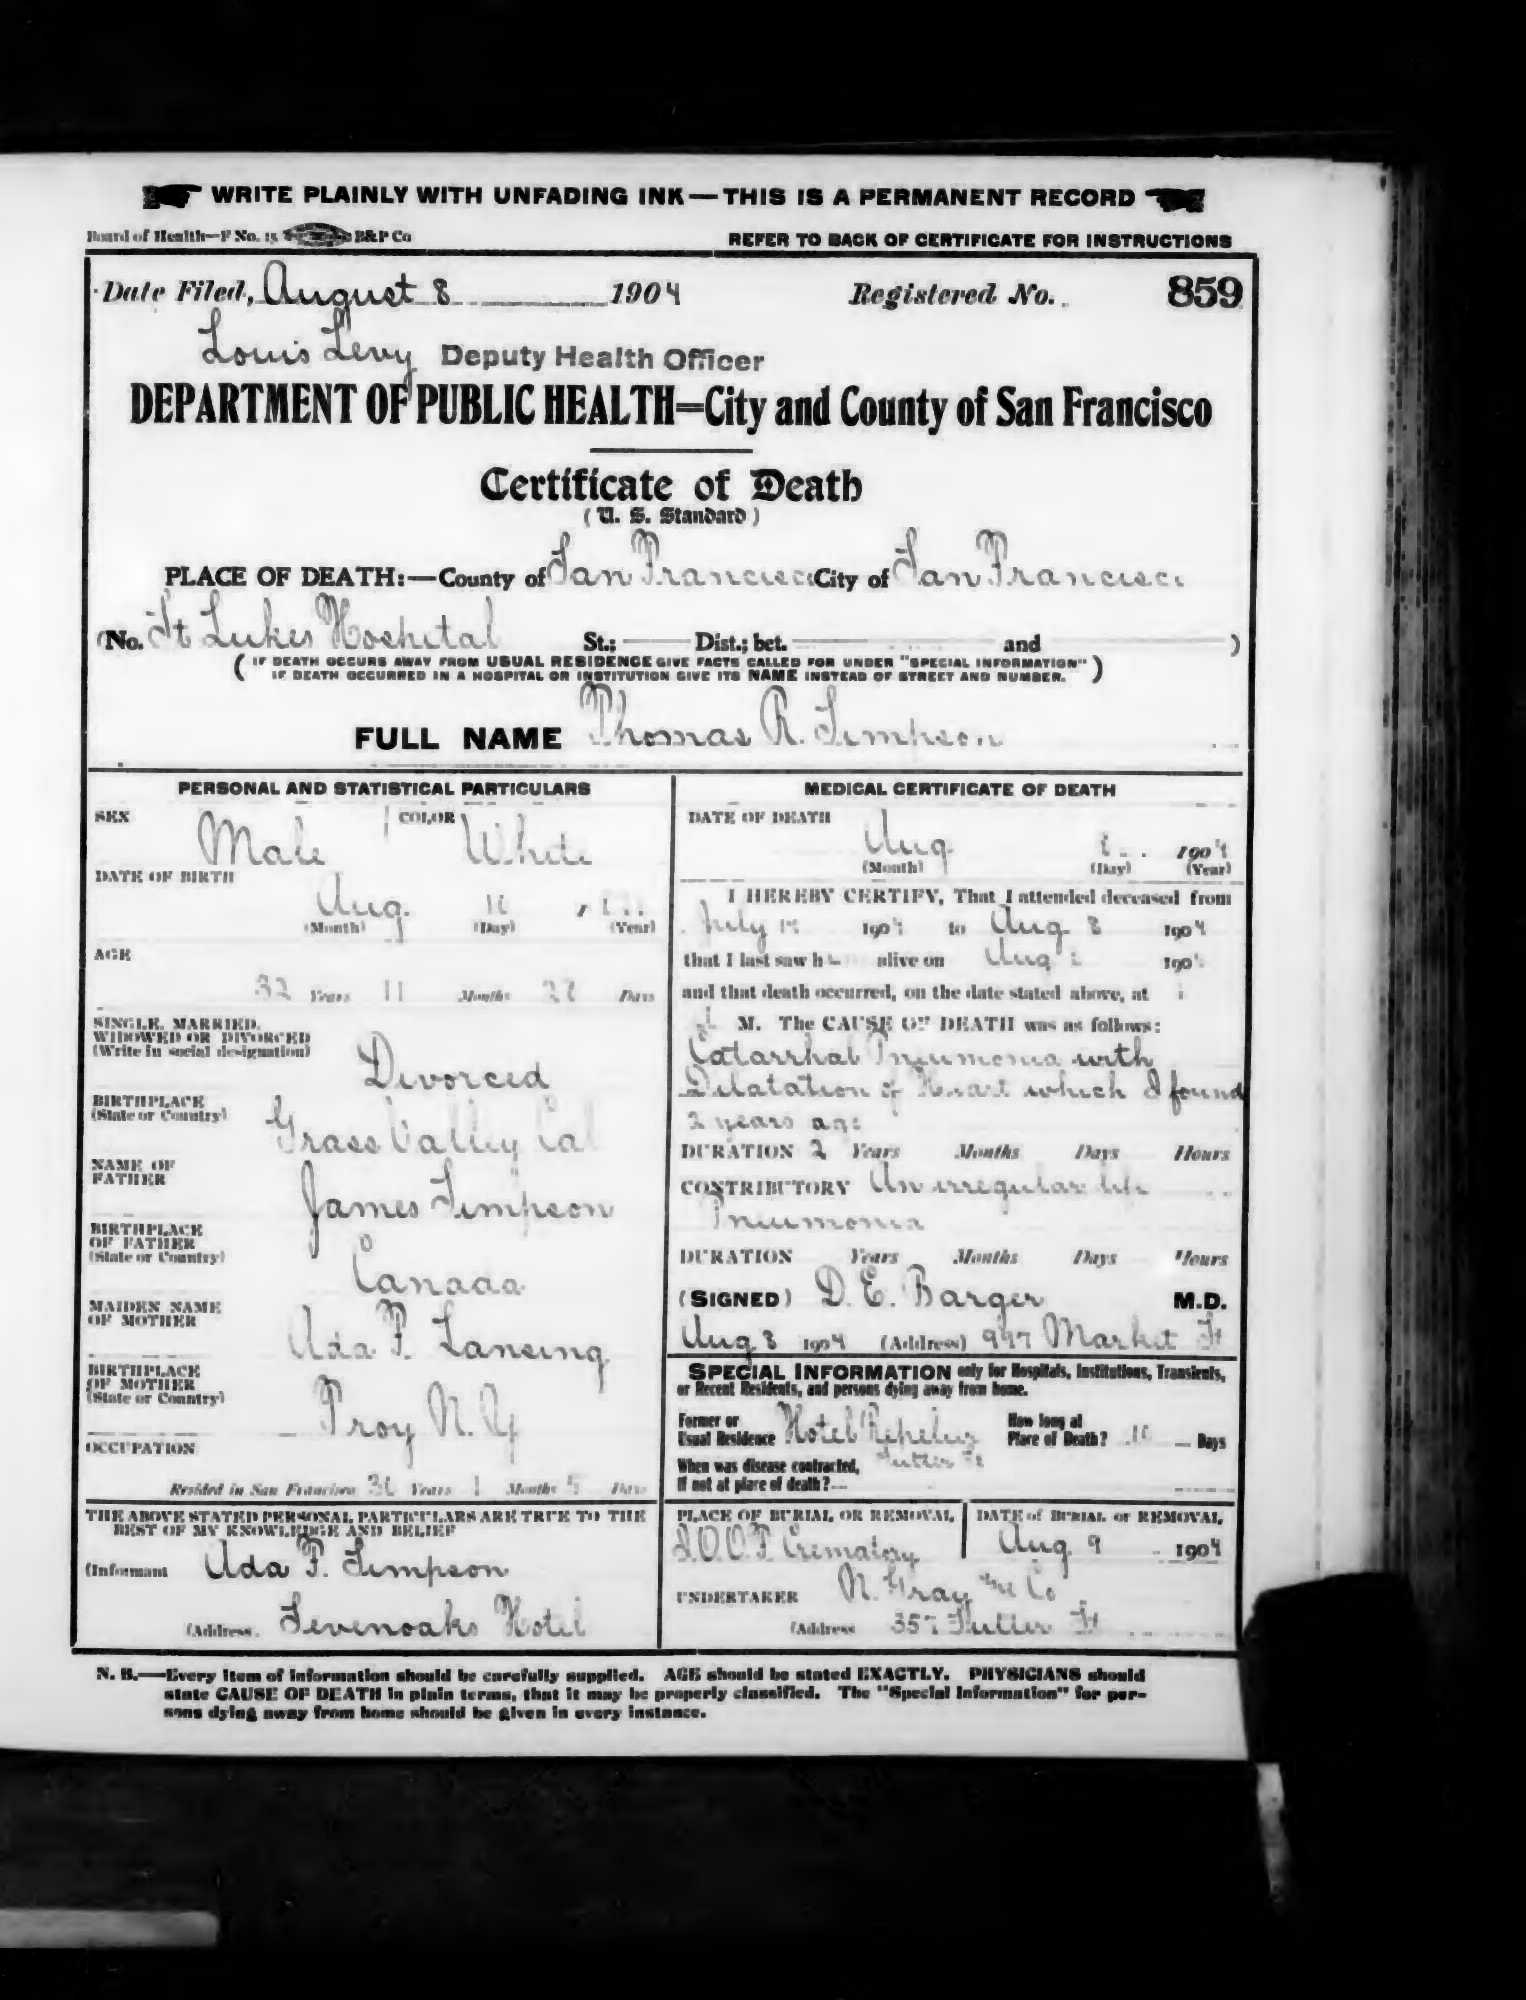 WRITE PLAINLY WITH UNFADING INK—THIS IS A PERMANENT RECORD
Board of Health—F No. 15 B&P Co
REFER TO BACK OF CERTIFICATE FOR INSTRUCTIONS
Date Filed, August 8 1904 Registered No. 859
Louis Levy Deputy Health Officer
DEPARTMENT OF PUBLIC HEALTH=City and County of San Francisco
Certificate of Death
(U. S. Standard)
PLACE OF DEATH:—County of San Francisco City of San Francisco
(No. St Lukes Hospital St.; Dist.; bet. and )
(IF DEATH OCCURS AWAY FROM USUAL RESIDENCE GIVE FACTS CALLED FOR UNDER "SPECIAL INFORMATION"
IF DEATH OCCURRED IN A HOSPITAL OR INSTITUTION GIVE ITS NAME INSTEAD OF STREET AND NUMBER.)
FULL NAME Thomas R. Simpson
PERSONAL AND STATISTICAL PARTICULARS
SEX Male COLOR White
DATE OF BIRTH
Aug.
(Month) (Day) (Year)
AGE
32 Years 11 Months Days
SINGLE, MARRIED,
WIDOWED OR DIVORCED
(Write in social designation)
Divorced
BIRTHPLACE
(State or Country)
Grass Valley Cal
NAME OF
FATHER
James Simpson
BIRTHPLACE
OF FATHER
(State or Country)
Canada
MAIDEN NAME
OF MOTHER
Ada F. Lansing
BIRTHPLACE
OF MOTHER
(State or Country)
Troy N.Y
OCCUPATION
Resided in San Francisco Years 1 Months 5 Days
THE ABOVE STATED PERSONAL PARTICULARS ARE TRUE TO THE
BEST OF MY KNOWLEDGE AND BELIEF
(Informant Ada F. Simpson
(Address. Sevenoaks Hotel
MEDICAL CERTIFICATE OF DEATH
DATE OF DEATH
Aug 8 1904
(Month) (Day) (Year)
I HEREBY CERTIFY, That I attended deceased from
July 1904 to Aug 8 1904
that I last saw h alive on Aug 190
and that death occurred, on the date stated above, at
M. The CAUSE OF DEATH was as follows:
Catarrhal Pneumonia with
Dilatation of Heart which I found
2 years ago
DURATION 2 Years Months Days Hours
CONTRIBUTORY An irregular life
Pneumonia
DURATION Years Months Days Hours
(SIGNED) D. E. Barger M.D.
Aug 8 1904 (Address) 997 Market St
SPECIAL INFORMATION only for Hospitals, Institutions, Transients,
or Recent Residents, and persons dying away from home.
Former or
Usual Residence Hotel
Sutter St
How long at
Place of Death? 10 Days
When was disease contracted,
If not at place of death?
PLACE OF BURIAL OR REMOVAL
I.O.O.F. Crematory
DATE of BURIAL or REMOVAL
Aug. 9 1904
UNDERTAKER N. Gray & Co
(Address 357 Sutter St
N. B.—Every item of information should be carefully supplied. AGE should be stated EXACTLY. PHYSICIANS should
state CAUSE OF DEATH in plain terms, that it may be properly classified. The "Special Information" for per-
sons dying away from home should be given in every instance.